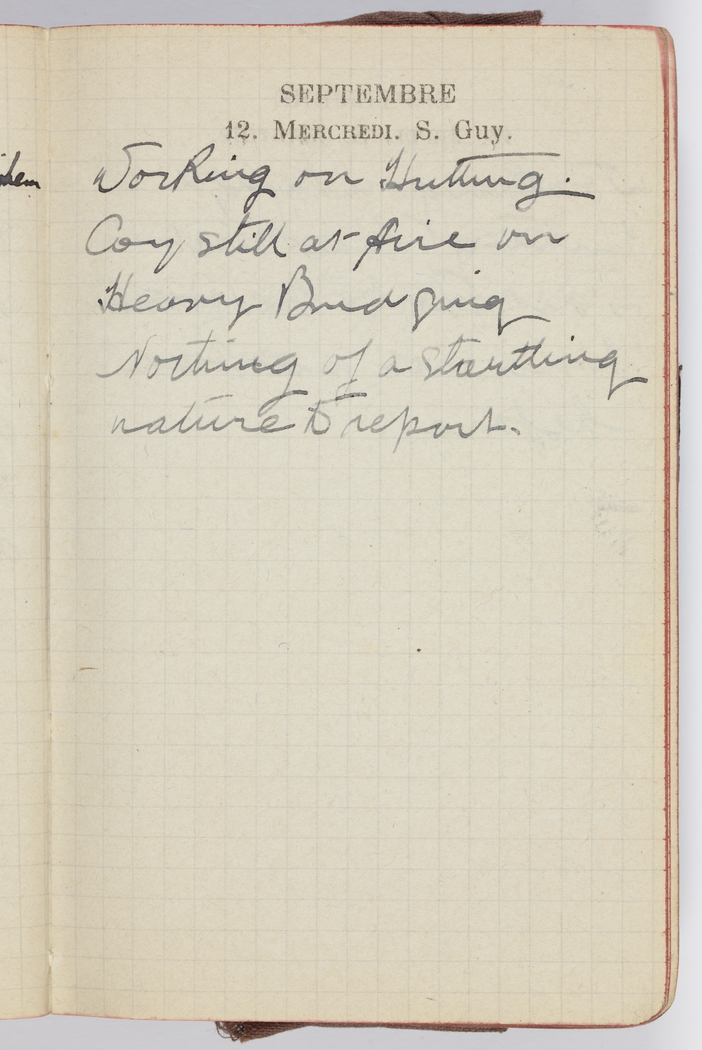 SEPTEMBRE
12. MERCREDI. S. Guy.
Working on Hutting.
Coy still at Aire on
Heavy Bridging
Nothing of a startling
nature to report.